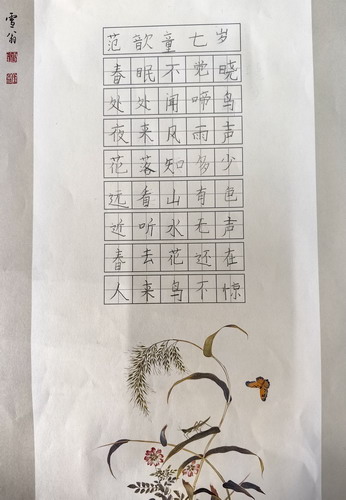 雪翁
范歆童七岁
春眠不觉晓
处处闻啼鸟
夜来风雨声
花落知多少
远看山有色
近听水无声
春去花还在
人来鸟不惊